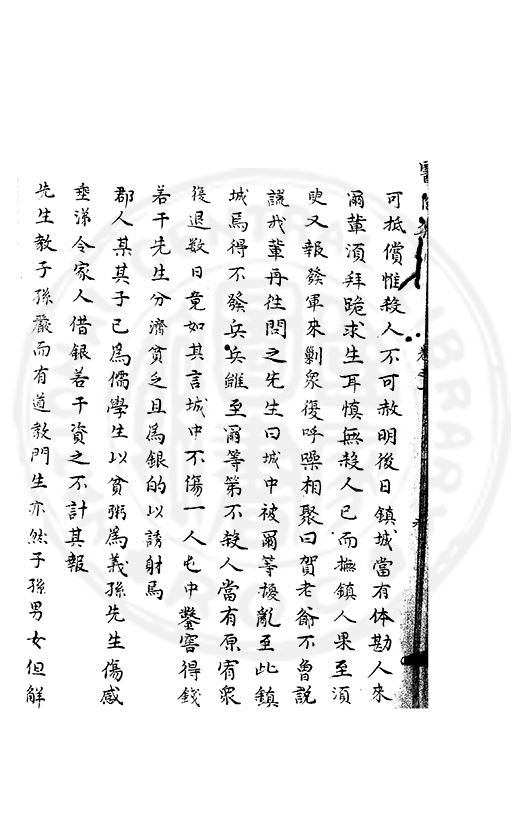 可抵償惟殺人不可赦明後日鎮城當有体勘人來
爾輩湏拜跪求生耳慎無殺人已而撫鎮人果至湏
臾又報發軍來剿衆復呼噪相聚曰賀老爺不曾説
謊我輩再往問之先生曰城中被爾等擾亂至此鎮
城焉得不發兵兵雖至爾等第不殺人當有原宥衆
復退数日竟如其言城中不傷一人屯中鑿窖得錢
若干先生分濟貧乏且為銀的以誘射焉
郡人某其子已爲儒學生以貧粥爲義孫先生傷感
垂涕令家人借銀若干資之不計其報
先生教子孫嚴而有道教門生亦然子孫男女但解